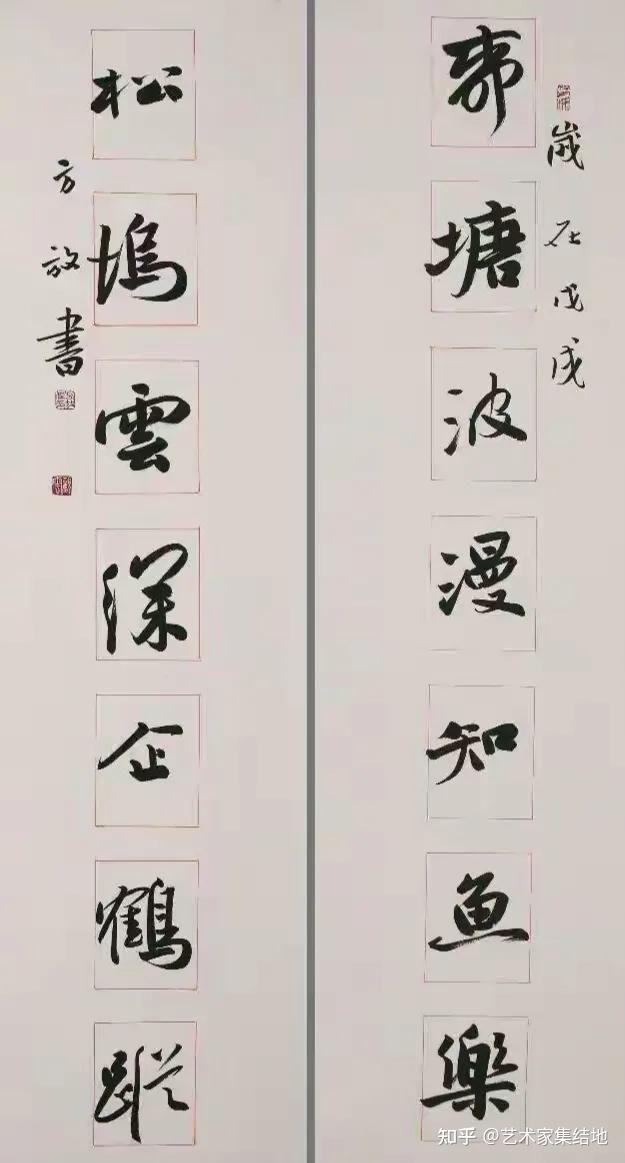 歲在戊戌
塘波漫知魚樂
松塢雲深企鶴蹤
方放書
知乎 @艺术家集结地